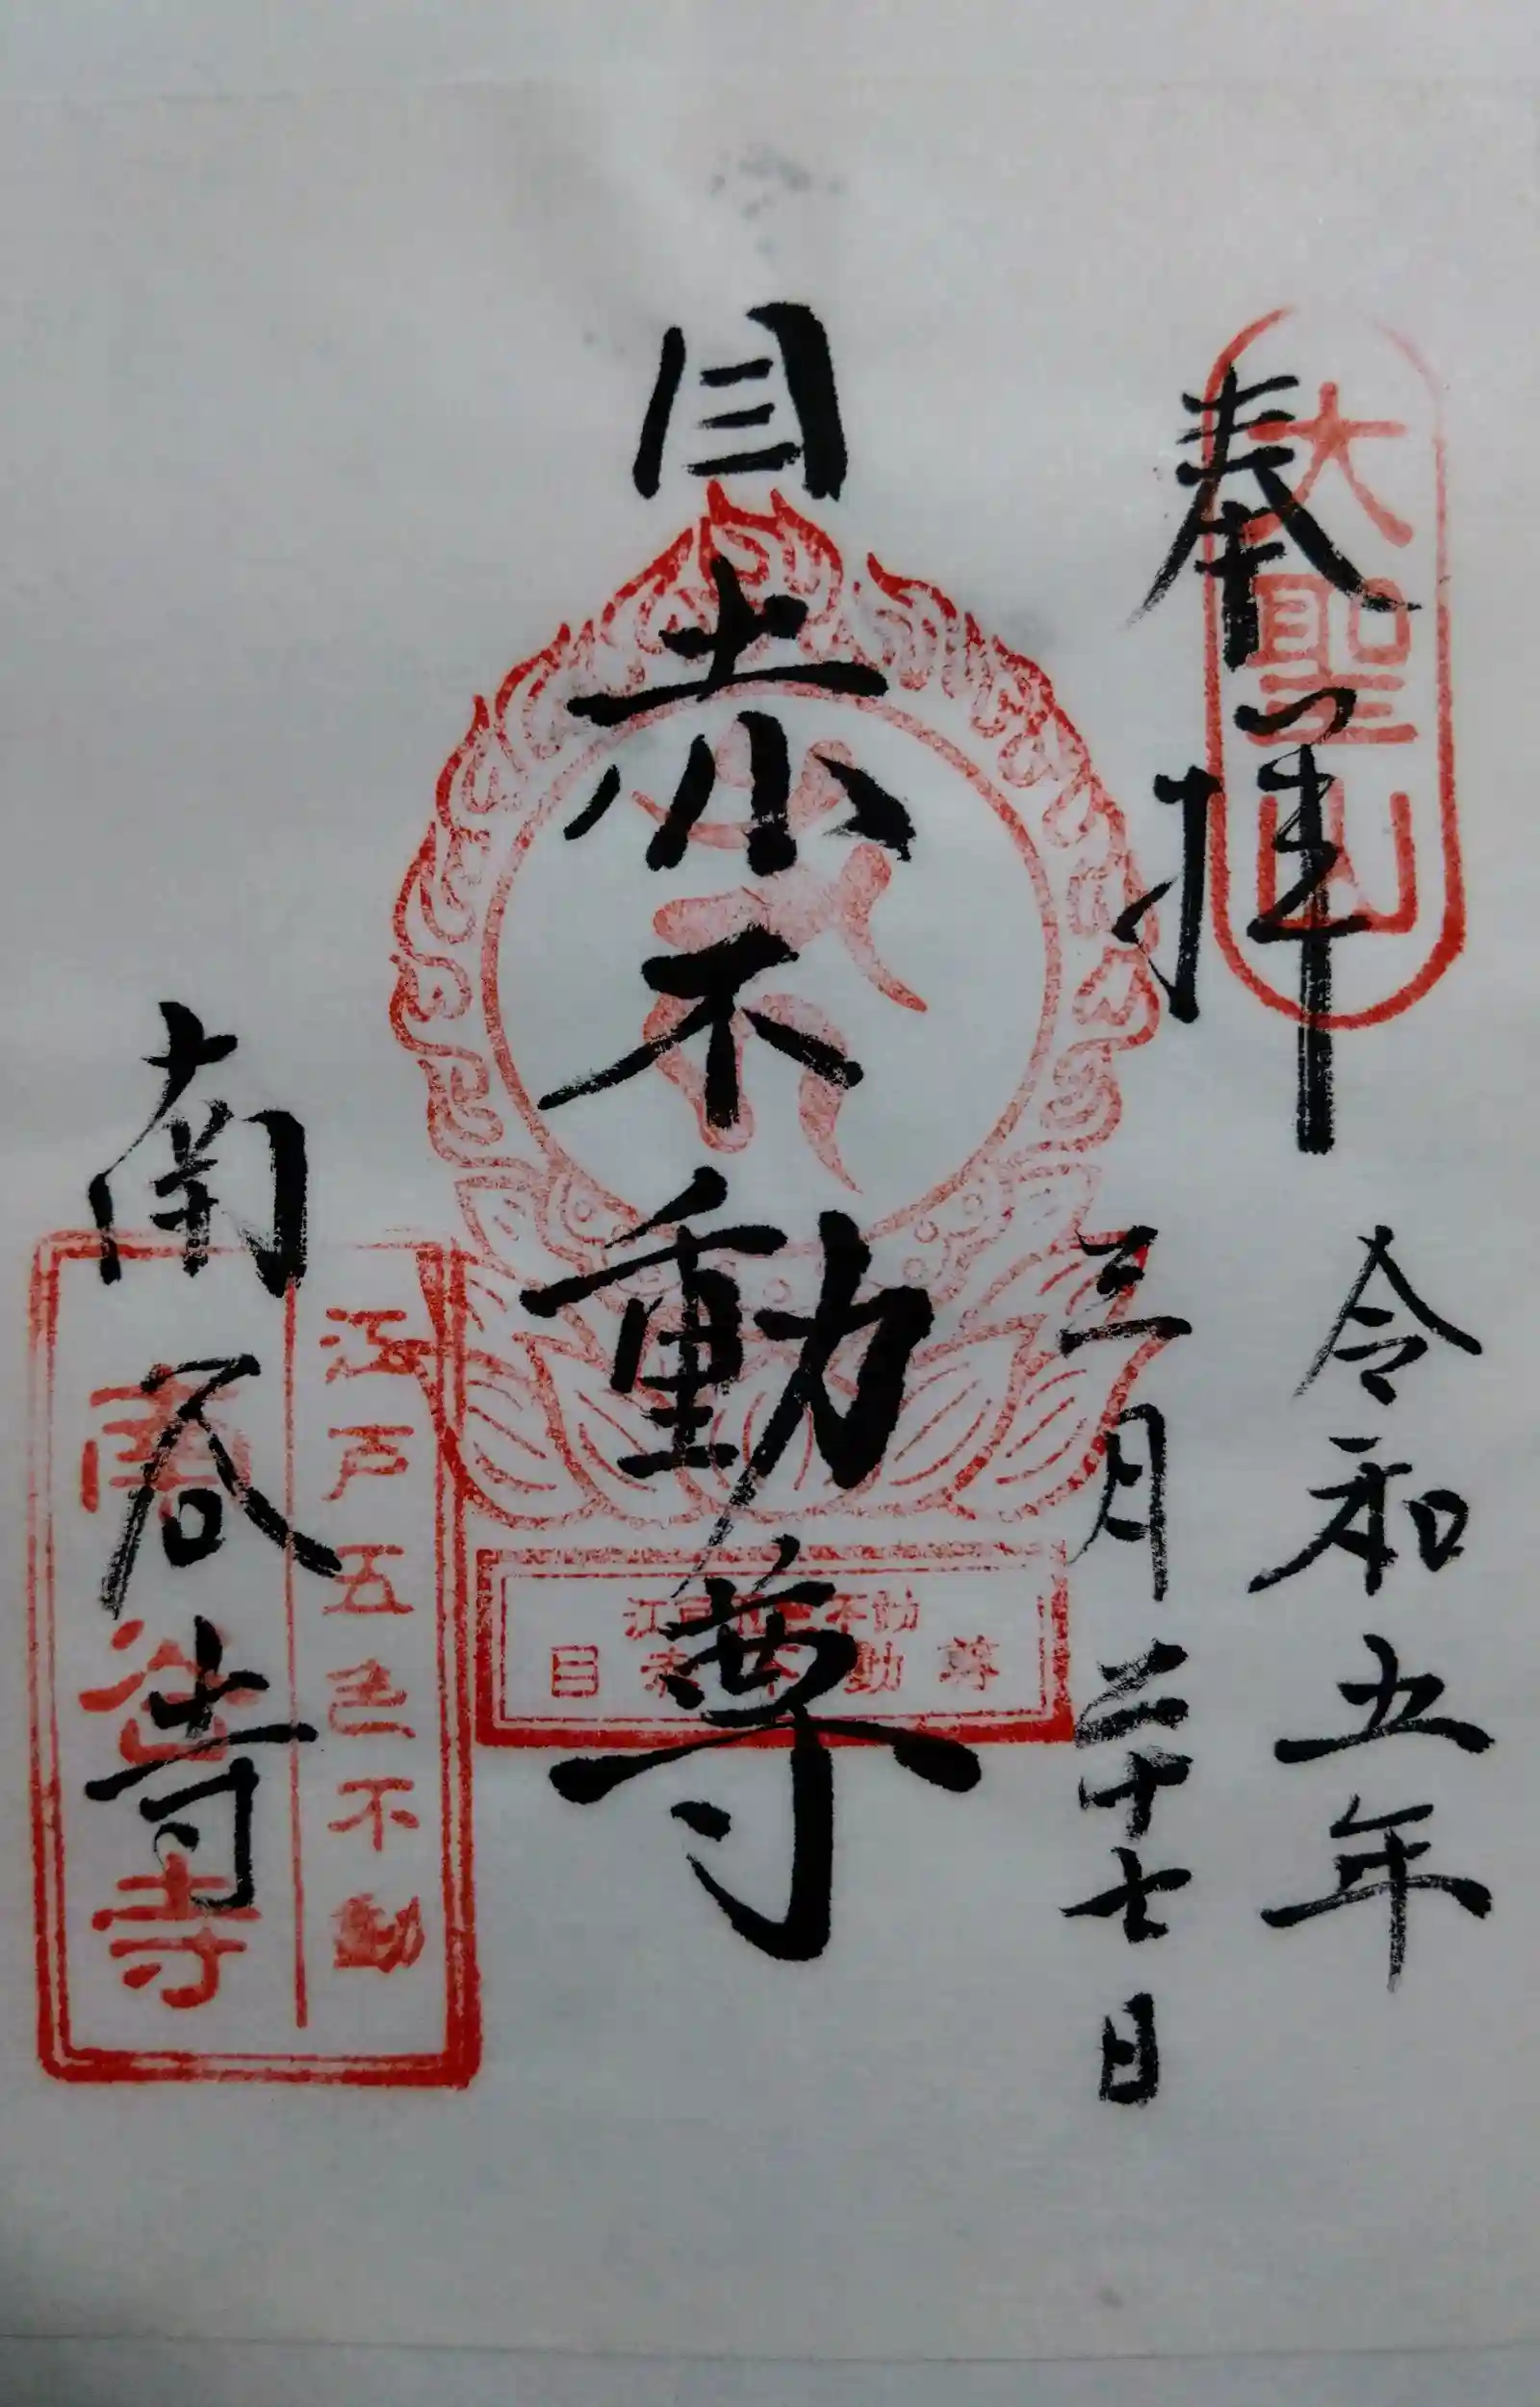 奉拝
大聖山
令和五年
三月二十七日
目赤不動尊
江戸五色不動
目赤不動尊
南谷寺
江戸五色不動
南谷寺